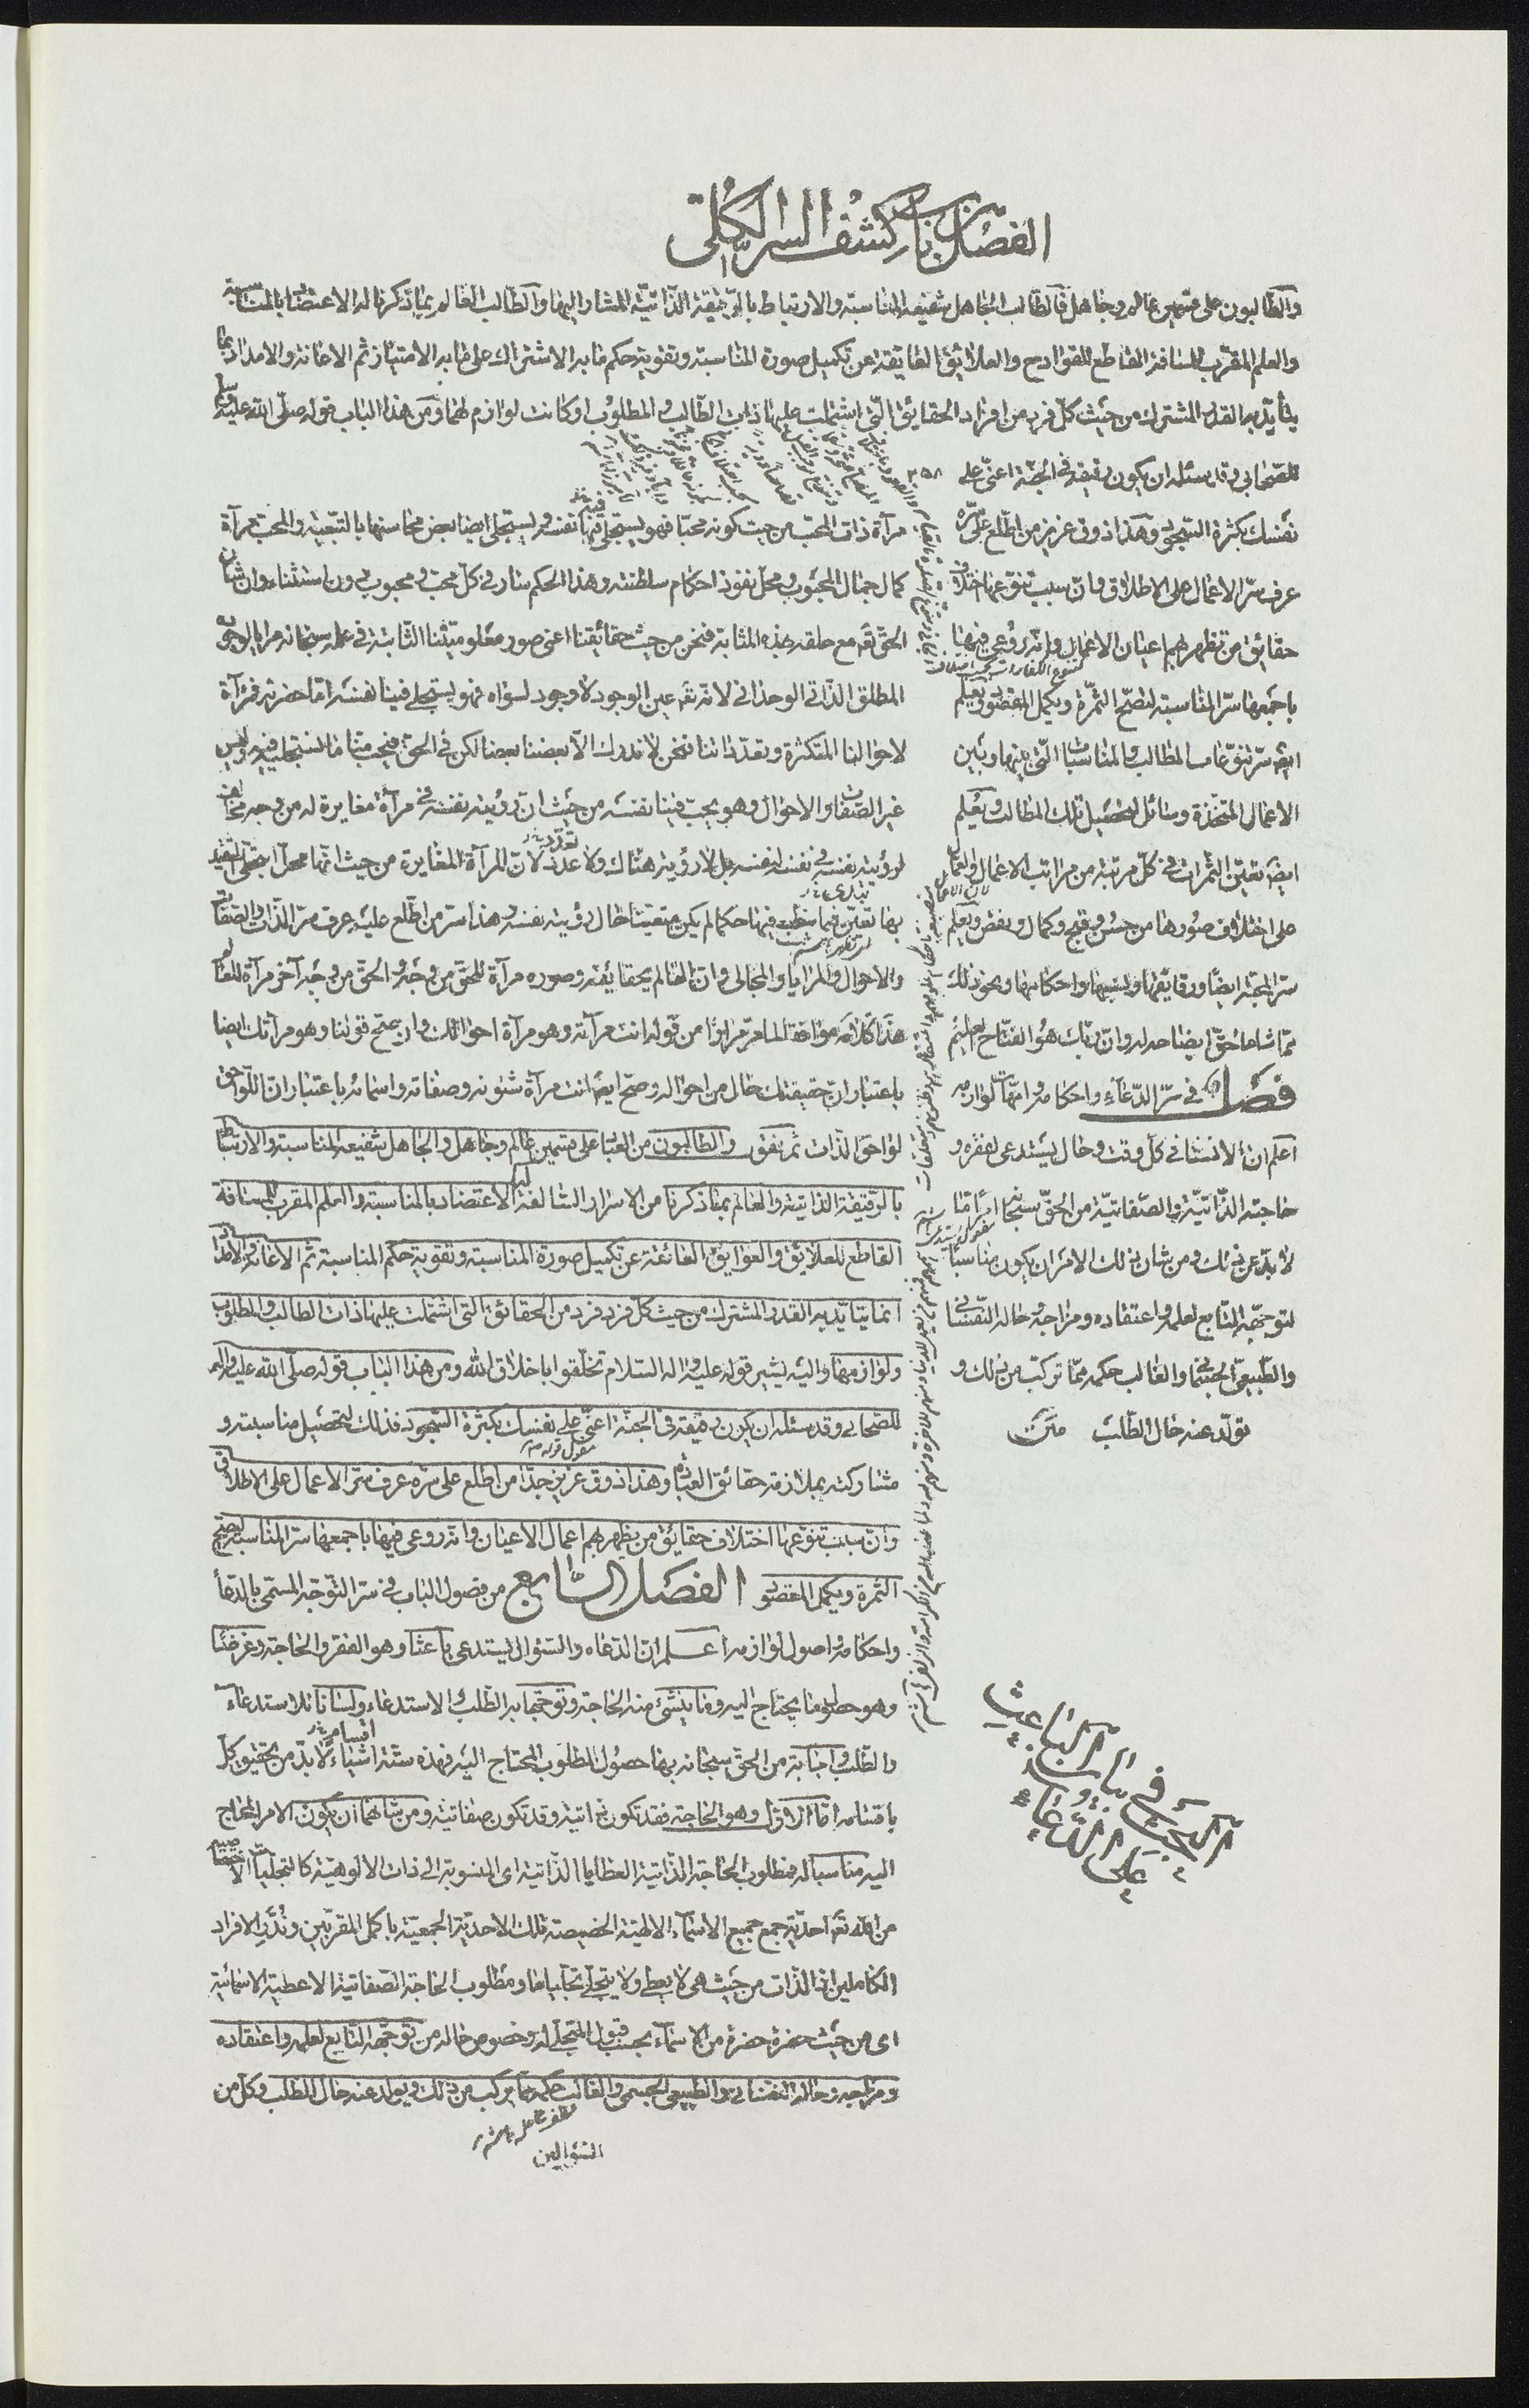 الفصل من باب كشف السر الكلى
والطالبون على قسمين عالم وجاهل فالطالب الجاهل شفيعه المناسبة والارتباط بالرقيقة الذاتية المشار اليها والطالب العالم بما ذكرنا له الاعتضاد بالمناسبة
والعلم المقرب للمسافة القاطع للقوادح والعلائق العايقة عن تكميل صورة المناسبة وتقوية حكم ما به الاشتراك على ما به الامتياز ثم الاعانة والامداد بما
يتأيد به القدر المشترك من حيث كل فرد من افراد الحقائق التى اشتملت عليها ذات الطالب والمطلوب او كانت لوازم لهما ومن هذا الباب قوله صلى الله عليه وسلم
للصحابى وقد سئله ان يكون رفيقه فى الجنة اعنى على
نفسك بكثرة السجود وهذا ذوق عزيز من اطلع على سره
عرف سر الاعمال على الاطلاق وان سبب تنوعها اختلاف
حقايق من تظهر بهم اعيان الاعمال وانه روعى فيها
باجمعها سر المناسبة لتصح الثمرة ويكمل المقصود ويعلم
ايضا سر تنوعات المطالب والمناسبات التى بينها وبين
الاعمال المتخذة وسائل لتحصيل تلك المطالب ويعلم
ايضا تعين الثمرات فى كل مرتبة من مراتب الاعمال
على اختلاف صورها من حسن وقبح وكمال ونقص ويعلم
سر المحبة ايضا ورقايقها ونسبها واحكامها ونحو ذلك
مما شاء الحق ايضاحه له وان ربك هو الفتاح العليم
فصل فى سر الدعاء واحكامه وامهات لوازمه
اعلم ان الانسان فى كل وقت وحال يستدعى لفقره و
حاجته الذاتية والصفاتية من الحق سبحانه امرا ما
لا بد عن ذلك ومن شان ذلك الامر ان يكون مناسبا
لتوجهه التابع لعلمه واعتقاده ومزاجه وحاله النفسانى
والطبيعى الجسمانى والغالب حكمه مما تركب من ذلك و
تولد عنه حال الطلب متن
مرآة ذات المحب من حيث كونه محبا فهو يستجلى فيها نفسه ويستجلى ايضا بعض محاسنها بالتبعية والمحب مرآة
كمال جمال المحبوب ومحل نفوذ احكام سلطنته وهذا الحكم سار فى كل محب ومحبوب دون استثناء وان شان
الحق تع مع خلقه بهذه المثابة فنحن من حيث حقائقنا اعنى صور معلوميتنا الثابتة فى علمه سبحانه مرايا لوجوده
المطلق الذاتى الوحدانى لانه تع عين الوجود لا وجود لسواه فهو يستجلى فينا نفسه اما حضرته فمرآة
لاحوالنا المتكثرة وتعدداتنا فنحن لا ندرك الا بعضنا بعضا لكن فى الحق فيحب منا ما نستجليه فيه وليس
غير الصفات والاحوال وهو يحب فينا نفسه من حيث ان رؤيته نفسه فى مرآة مغايرة له من وجه مخالف
لرؤيته نفسه فى نفسه لنفسه بل لا رؤية هناك ولا عدد لان المرآة المغايرة من حيث انها محل تجلى التقيد
بها تعين فيما ينطبع فيها حكما لم يكن متعينا حال رؤيته نفسه بنفسه هذا سر من اطلع عليه عرف سر الذات والصفات
والاحوال والمرايا والمجالى وان العالم بحقايقه وصوره مرآة للحق من وجه والحق من وجه آخر مرآة للعالم
هذا كلامه موافقة لما مر مرارا من قوله انت مرآته وهو مرآة احوالك وان يصح قولنا وهو مرآتك ايضا
باعتبار ان حقيقتك حال من احواله وصح ايضا انت مرآة شئونه وصفاته واسمائه باعتبار ان اللواحق
لواحق الذات ثم نقول والطالبون من العباد على قسمين عالم وجاهل والجاهل شفيعه المناسبة والارتباط
بالرقيقة الذاتية والعالم بما ذكرنا من الاسرار السالفة له الاعتضاد بالمناسبة والعلم المقرب للمسافة
القاطع للعلائق والعوايق العائقة عن تكميل صورة المناسبة وتقوية حكم المناسبة ثم الاعانة والامداد
انما يتايد به القدر المشترك من حيث كل فرد فرد من الحقائق التى اشتملت عليها ذات الطالب والمطلوب
ولوازمهما واليه يشير قوله عليه واله السلام تخلقوا باخلاق الله ومن هذا الباب قوله صلى الله عليه واله
للصحابى وقد سئله ان يكون رفيقه فى الجنة اعنى على نفسك بكثرة السجود فذلك لتحصيل مناسبته و
مشاركته بملازمة حقائق العبادة وهذا ذوق عزيز جدا من اطلع على سره عرف سر الاعمال على الاطلاق
وان سبب تنوعها اختلاف حقائق من يظهر بهم اعمال الاعيان وانه روعى فيها باجمعها سر المناسبة ليصح
الثمرة ويكمل المقصود الفصل السابع من فصول الباب فى سر التوجه المسمى بالدعاء
واحكامه واصول لوازمه اعلم ان الدعاء والسئوال يستدعى باعثا وهو الفقر والحاجة وغرضا
وهو حصول ما يحتاج اليه وما ينشئ منه الحاجة وتوجها به الطلب والاستدعاء ولسانا للاستدعاء
والطلب واجابة من الحق سبحانه بها حصول المطلوب المحتاج اليه فهذه ستة اشياء لا بد من تحقيق كل
باقسامه اما الاول وهو الحاجة فقد تكون ذاتية وقد تكون صفاتية ومن شانهما ان يكون الامر المحتاج
اليه مناسبا له فمطلوب الحاجة الذاتية العطايا الذاتية اى المنسوبة الى ذات الالوهية كالتجليات الاختصاصية
من الله تع احدية جمع جميع الاسماء الالهية الخصيصة تلك الاحدية الجمعية باكمل المقربين وندر الافراد
الكاملين اذ الذات من حيث هى لا يعطى ولا يتجلى تجليا ما ومطلوب الحاجة الصفاتية الاعطية الاسمائية
اى من حيث حضرة حضرة من الاسماء بحسب قبول المتجلى له وخصوص حاله من توجهه التابع لعلمه واعتقاده
ومزاجه وحاله النفسانى والطبيعى الجسمى والغالب حكمه مما يركب من ذلك ويولد عنه حال الطلب وكل من
السئوالين
البحث فى بيان الباعث
على الدعاء